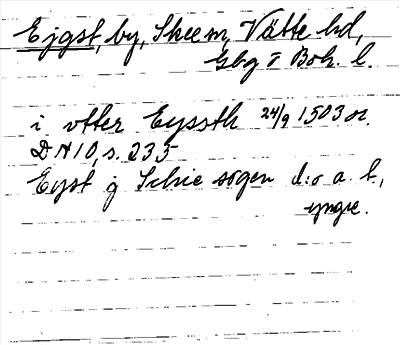 Ejgst, by, Skee sn, Vätte hd,
Gbg o Boh. l.
i vtter Eyssth 24/9 1503 or.
DN 10, s. 235
Eyst j Schie sogen d:o a. b.,
yngre.